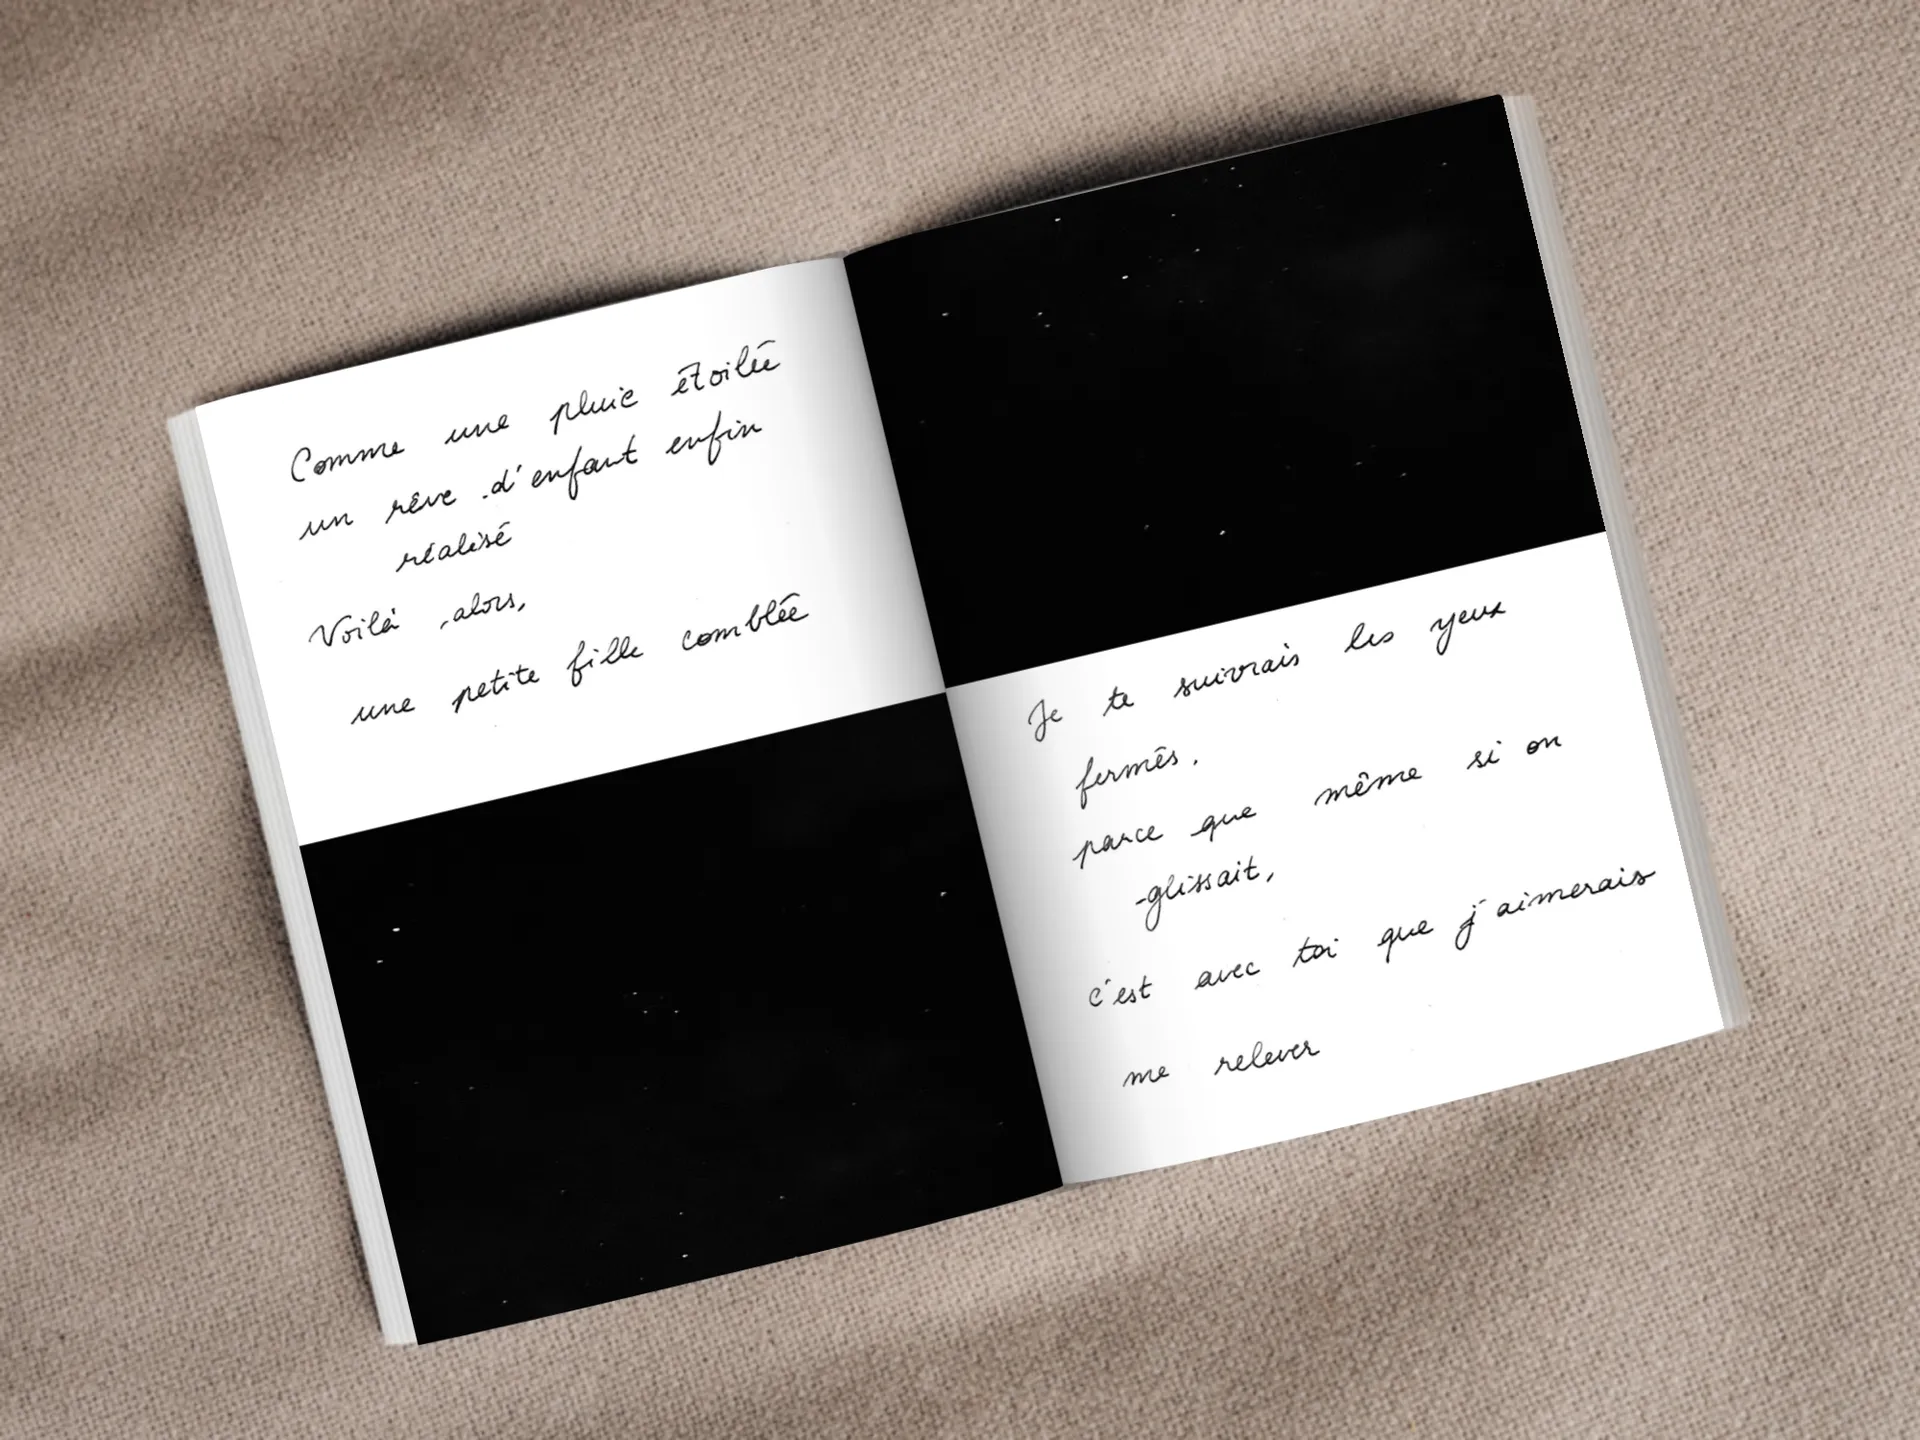 Comme une pluie étoilée
un rêve d'enfant enfin
réalisé
Voilà alors,
une petite fille comblée
Je te suivrais les yeux
fermés,
parce que même si on
glissait,
c'est avec toi que j'aimerais
me relever